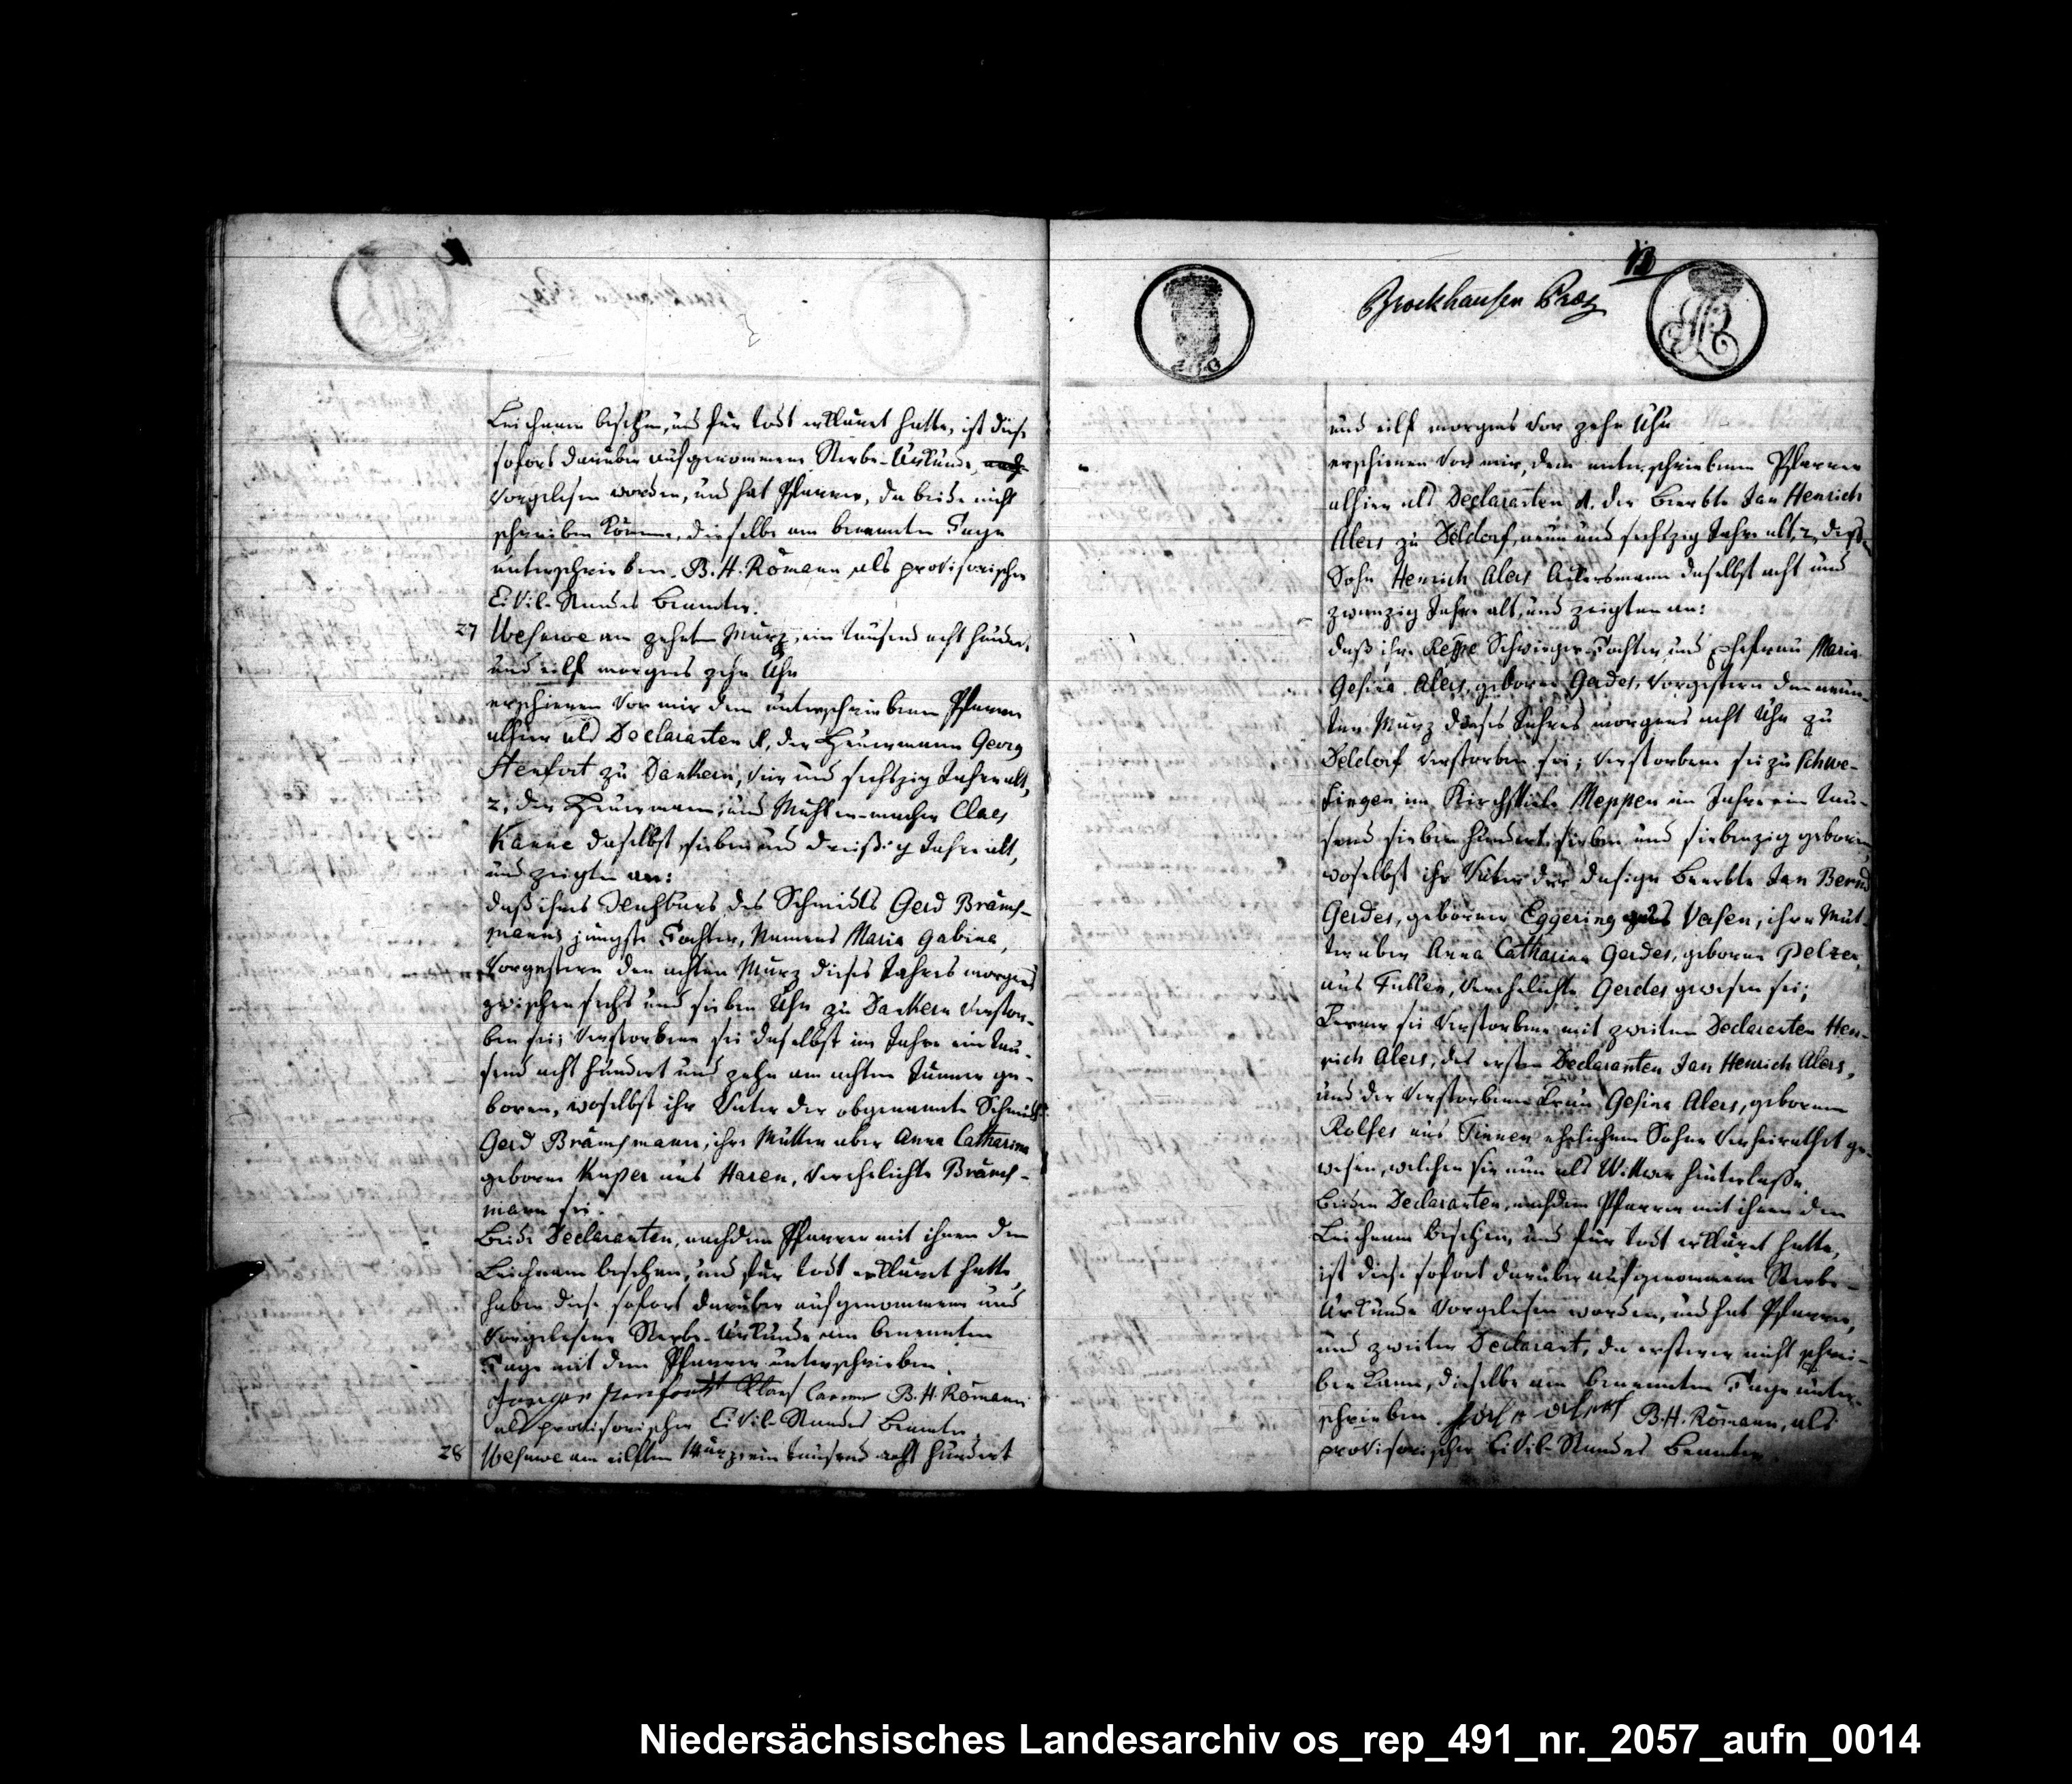 Leichnam besehen, und für todt erkläret hatte, ist diese
sofort darüber aufgenommene Sterbe-Urkunde
vorgelesen worden, und hat Pfarrer, da beide nicht
schreiben können, dieselbe am benannten Tage
unterschrieben. B. H. Römann als provisorischer
Civil-Standes Beamter.
27 Wesuwe am zehnten März, ein tausend acht hundert
und eilf morgens zehn Uhr
erschienen vor mir dem unterschriebenen Pfarrer
alhier als Declaranten 1, der Heuermann Georg
Stenfort zu Dankern, vier und sechszig Jahre alt,
2, der Heuermann, und Mühlen-macher Claes
Kanne daselbst, sieben und dreißig Jahre alt,
und zeigten an:
daß ihres Nachbars des Schmidts Gerd Bräms-
manns jüngste Tochter, Namens Maria Gabina,
vorgestern den achten März dieses Jahres morgens
zwischen sechs und sieben Uhr zu Dankern verstor-
ben sei; Verstorbene sei daselbst im Jahre ein tau-
send acht hundert und zehn am achten Jänner ge-
boren, woselbst ihr Vater der obgenannte Schmidt
Gerd Brämsmann, ihre Mutter aber Anna Catharina
geborne Kuper aus Haren, verehelichte Bräms-
mann sei.
Beide Declaranten, nachdem Pfarrer mit ihnen den
Leichnam besehen, und für todt erkläret hatte,
haben diese sofort darüber aufgenommene und
vorgelesene Sterbe-Urkunde am benannten
Tage mit dem Pfarrer unterschrieben.
B. H. Römann
als provisorischer Civil-Standes Beamter
28 Wesuwe am eilften März ein tausend acht hundert
13
Brockhausen
und eilf morgens vor zehn Uhr
erschienen vor mir, dem unterschriebenen Pfarrer
alhier als Declaranten 1. der Beerbte Jan Henrich
Alers zu Deldorf, neun und sechszig Jahre alt, 2, dessen
Sohn Henrich Alers Ackersmann daselbst acht und
zwanzig Jahre alt, und zeigten an:
daß ihre Schwieger-Tochter und Ehefrau Maria
Gesina Alers, geborne Gerdes, vorgestern den neun-
ten März dieses Jahres morgens acht Uhr zu
Deldorf verstorben sei; Verstorbene sei zu Schwe-
fingen im Kirchspiele Meppen im Jahre ein tau-
send sieben hundert sieben und siebenzig geboren,
woselbst ihr Vater der dasige Beerbte Jan Bernd
Gerdes, geborner Eggering aus Versen, ihre Mut-
ter aber Anna Catharina Gerdes, geborne Pelzer,
aus Fullen, verehelichte Gerdes gewesen sei;
Ferner sei Verstorbene mit zweiten Declaranten Hen-
rich Alers, des ersten Declaranten Jan Henrich Alers,
und der verstorbenen Frau Gesina Alers, gebornen
Rolfes aus Tinnen ehelichem Sohne verheirathet ge-
wesen, welchen sie nun als Wittwer hinterlasse.
Beiden Declaranten, nachdem Pfarrer mit ihnen den
Leichnam besehen, und für todt erkläret hatte,
ist diese sofort darüber aufgenommene Sterbe-
Urkunde vorgelesen worden, und hat Pfarrer,
und zweiter Declarant, da ersterer nicht schrei-
ben kann, dieselbe am benannten Tage unter-
schrieben. B. H. Römann, als
provisorischer Civil-Standes Beamter.
Niedersächsisches Landesarchiv os_rep_491_nr._2057_aufn_0014